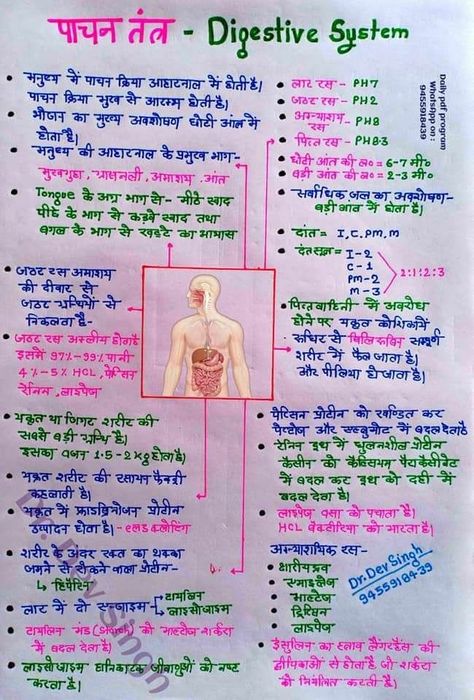 पाचन तंत्र - Digestive System
• मनुष्य में पाचन क्रिया आहारनाल में होती है।
पाचन क्रिया मुख से आरम्भ होती है।
• भोजन का मुख्य अवशोषण छोटी आंत में
होता है।
• मनुष्य की आहारनाल के प्रमुख भाग-
मुखगुहा, ग्रासनली, आमाशय, आंत
• Tongue के अग्र भाग से - मीठे स्वाद
पीछे के भाग से कड़वे स्वाद तथा
बगल के भाग से खट्टे का आभास
• जठर रस आमाशय
की दीवार से
जठर ग्रन्थियों से
निकलता है-
• जठर रस अम्लीय होता है
इसमें 97%-99% पानी
HCL, पेप्सिन
रेनिन, लाइपेज
• यकृत या जिगर शरीर की
सबसे बड़ी ग्रन्थि है।
इसका वजन 1.5-2 kg होता है।
• यकृत शरीर की रसायन फैक्ट्री
कहलाती है।
• यकृत में फ्राइब्रिनोजन प्रोटीन
उत्पादन होता है।
• शरीर के अंदर रक्त का थक्का
जमने से रोकने वाला प्रोटीन-
↳ हिपैरिन
• लार में दो एन्जाइम-
टायलिन
लाइसोजाइम
टायलिन मंड को माल्टोज शर्करा
में बदल देता है।
• लाइसोजाइम हानिकारक जीवाणुओं को नष्ट
करता है।
Daily pdf program
Whatsapp on :
9455918439
• लार रस - PH7
• जठर रस - PH2
• अग्न्याशय रस - PH8
• पित्त रस - PH8.3
• छोटी आंत की ल० = 6-7 मी०
• बड़ी आंत की ल० = 2-3 मी०
• सर्वाधिक जल का अवशोषण-
बड़ी आंत में होता है।
• दांत = I, C, PM, M
• दंतसूत्र =
I-2
C-1
PM-2
M-3
2:1:2:3
• पित्तवाहिनी में अवरोध
होने पर यकृत कोशिकायें
रुधिर से बिलिरुबिन सम्पूर्ण
शरीर में फैल जाता है।
और पीलिया हो जाता है।
• पेप्सिन प्रोटीन को खण्डित कर
पेप्टोज और में बदल देता है
• रेनिन दूध में घुलनशील प्रोटीन
केसीन को कैल्शियम पैराकैसीनेट
में बदल कर दूध को दही में
बदल देता है।
• लाइपेज वसा को पचाता है।
HCL बैक्टीरिया को मारता है।
अग्न्याशयिक रस-
• क्षारीय द्रव
• एमाइलेज
• माल्टेज
• ट्रिप्सिन
• लाइपेज
Dr. Dev Singh
9455918439
• इंसुलिन का स्त्राव लैंगरहैंस की
द्वीपिकाओं से होता है, जो शर्करा
को नियंत्रित करती है।
Dr. Dev Singh